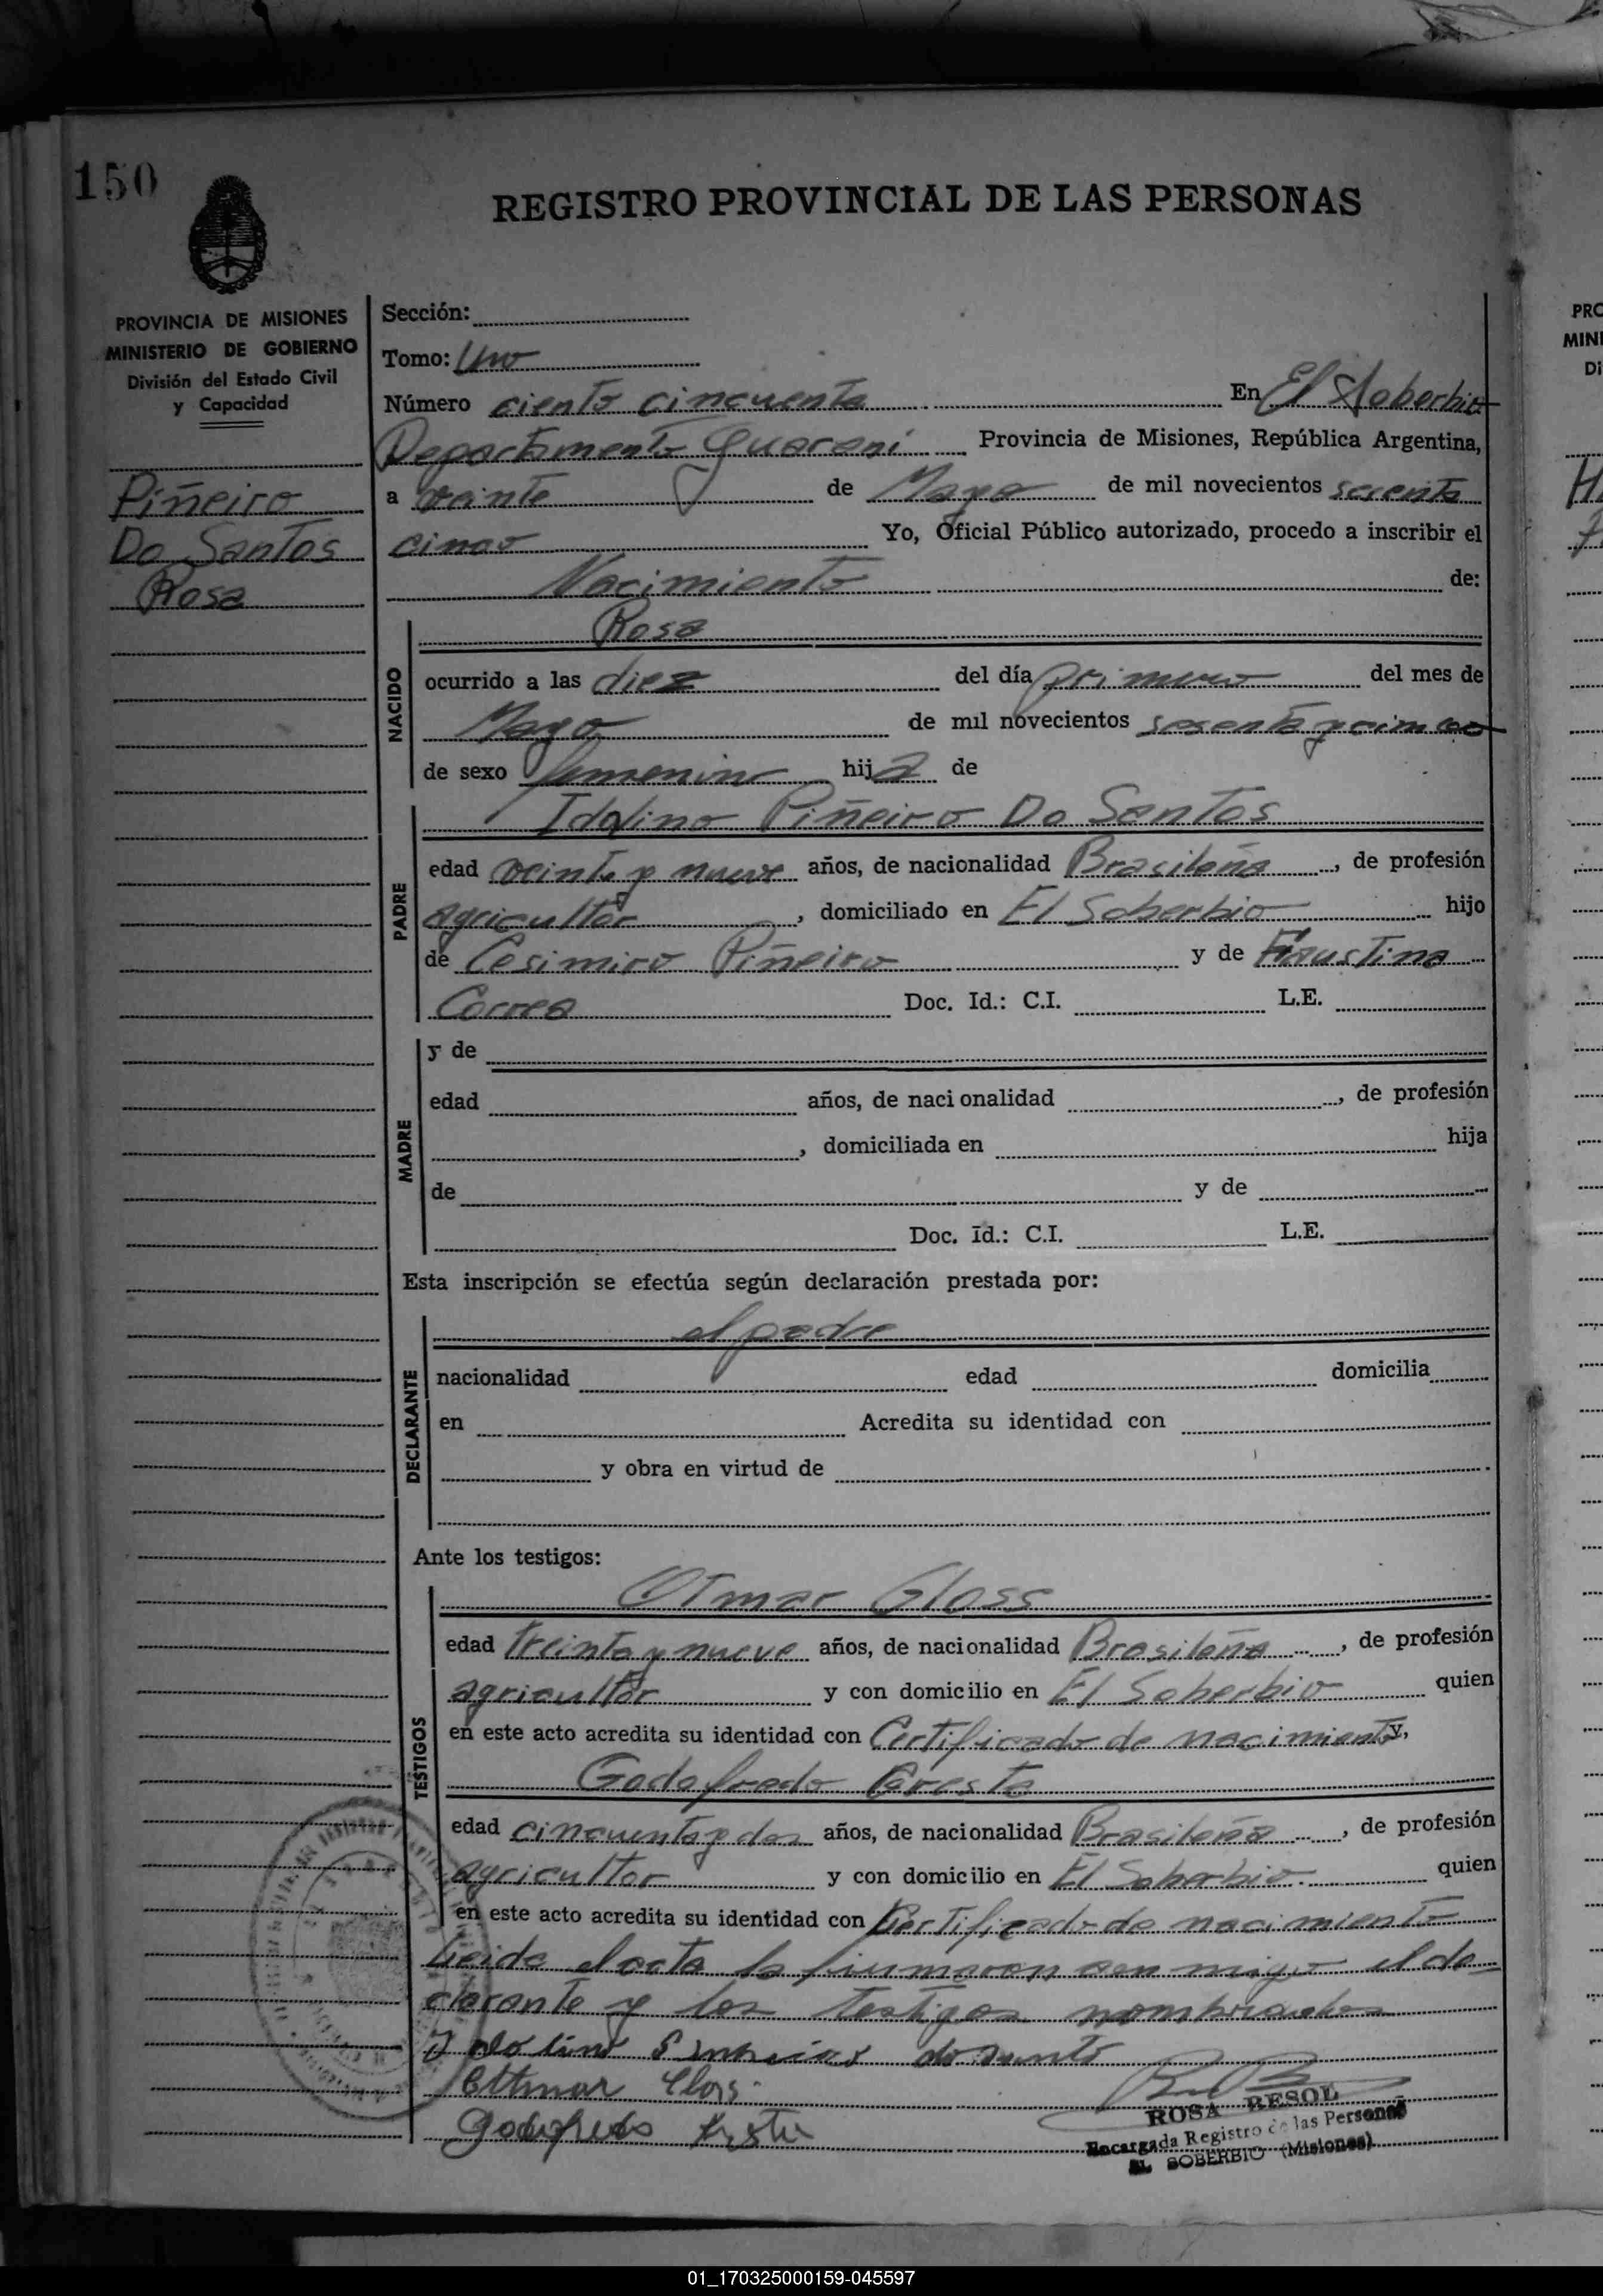 150
REGISTRO PROVINCIAL DE LAS PERSONAS
PROVINCIA DE MISIONES
MINISTERIO DE GOBIERNO
División del Estado Civil
y Capacidad
Piñeiro
Do Santos
Rosa
Sección:
Tomo: Uno
Número ciento cincuenta En El Soberbio
Departamento Guaraní Provincia de Misiones, República Argentina,
a veinte de Mayo de mil novecientos sesenta
cinco Yo, Oficial Público autorizado, procedo a inscribir el
Nacimiento de:
NACIDO
Rosa
ocurrido a las diez del día primero del mes de
Mayo de mil novecientos sesenta y cinco
de sexo femenino hija de
PADRE
Idalino Piñeiro Do Santos
edad veinte y nueve años, de nacionalidad Brasileña, de profesión
agricultor, domiciliado en El Soberbio hijo
de Cesimiro Piñeiro y de Faustina
Correa Doc. Id.: C.I. L.E.
MADRE
y de
edad años, de nacionalidad , de profesión
, domiciliada en hija
de y de
Doc. Id.: C.I. L.E.
Esta inscripción se efectúa según declaración prestada por:
DECLARANTE
el padre
nacionalidad edad domicilia
en Acredita su identidad con
y obra en virtud de
Ante los testigos:
TESTIGOS
Otmar Gloss
edad treinta y nueve años, de nacionalidad Brasileña, de profesión
agricultor y con domicilio en El Soberbio quien
en este acto acredita su identidad con Certificado de nacimiento y,
Godofredo
edad cincuenta y dos años, de nacionalidad Brasileña, de profesión
agricultor y con domicilio en El Soberbio. quien
en este acto acredita su identidad con Certificado de nacimiento
Leida el acta la firmaron con migo el de-
clarante y los testigos nombrados
ROSA RESOL
Encargada Registro de las Personas
EL SOBERBIO (Misiones)
PRO
MINI
Di
01_170325000159-045597